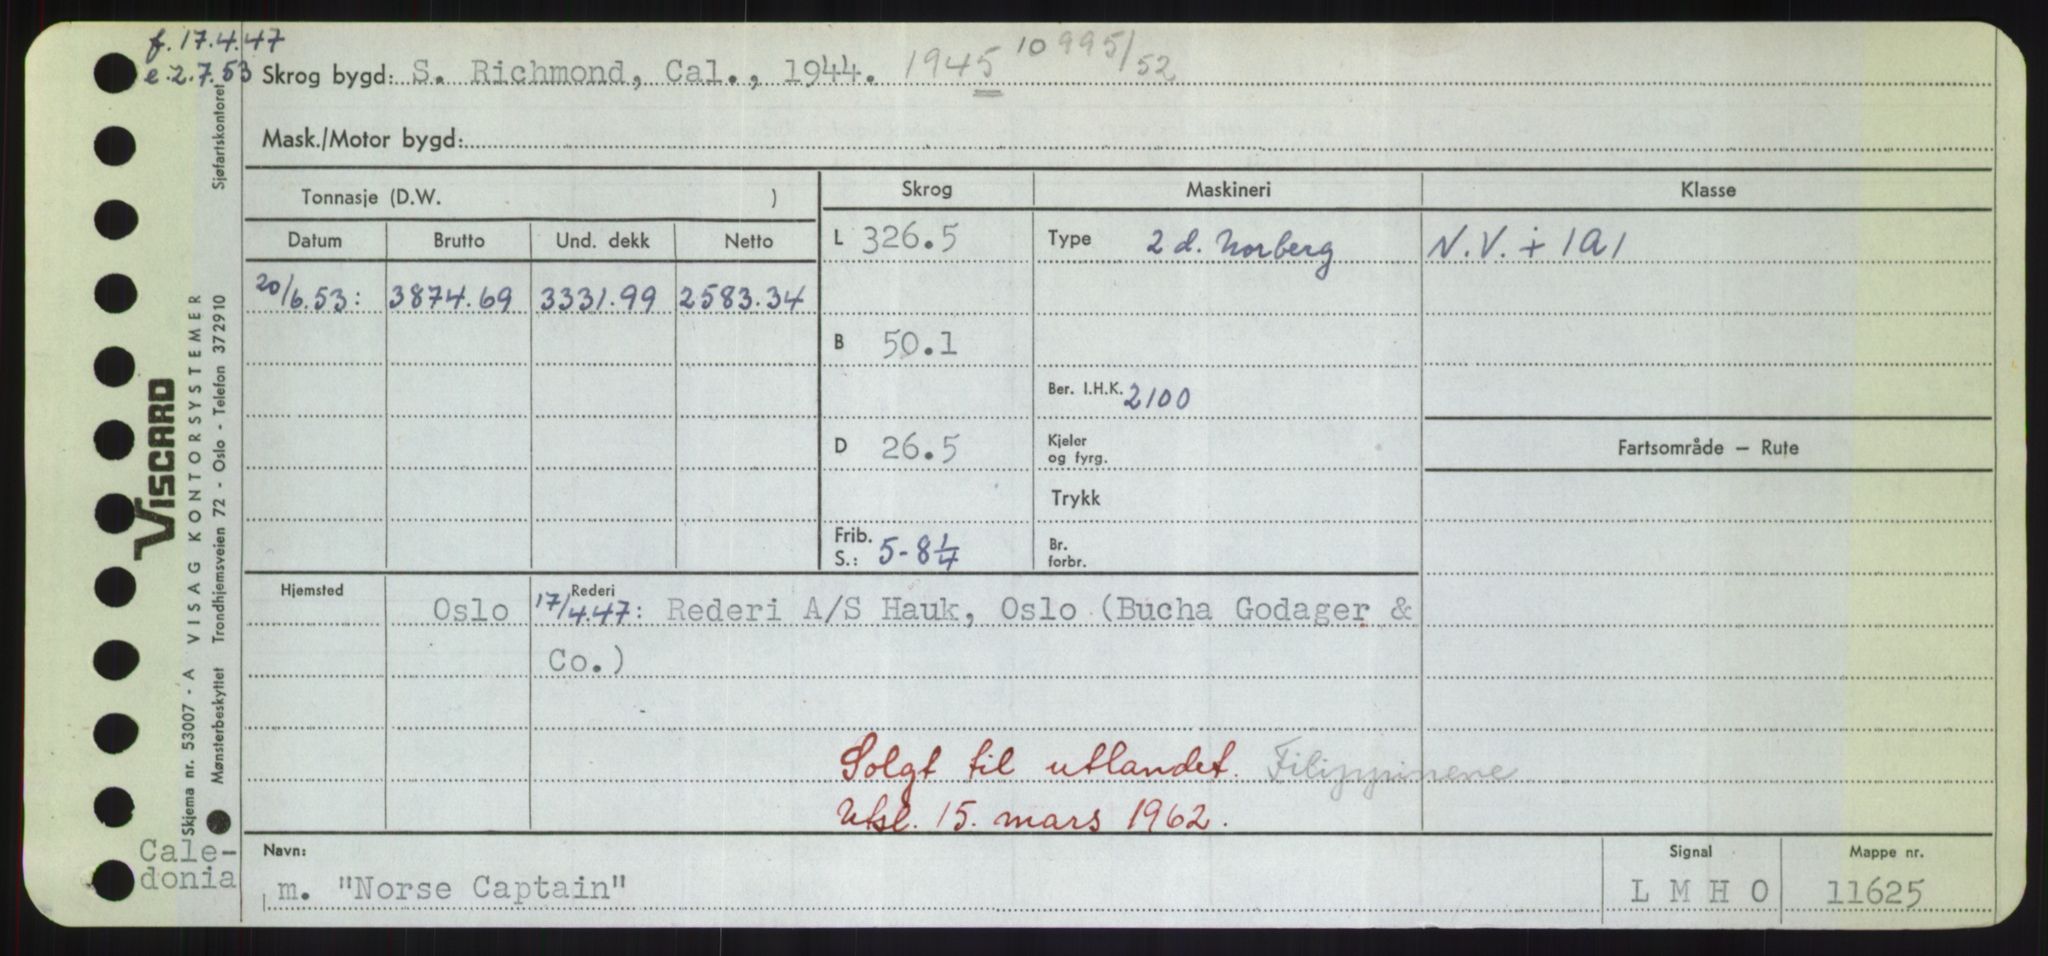 f. 17.4.47
e. 2.7.53 Skrog bygd: S. Richmond, Cal., 1944. 1945 10995/52
Mask./Motor bygd:
Tonnasje (D.W. )
Skrog Maskineri Klasse
Datum Brutto Und. dekk Netto
L 326.5 Type 2 d. Norberg N.V. + 1A1
20/6.53: 3874.69 3331.99 2583.34
B 50.1
Ber. I.H.K. 2100
D 26.5 Kjeler og fyrg. Fartsområde – Rute
Trykk
Frib. S.: 5-8¼ Br. forbr.
Hjemsted Rederi
Oslo 17/4.47: Rederi A/S Hauk, Oslo (Bucha Godager &
Co.)
Solgt til utlandet. Filippinene
Utsl. 15. mars 1962.
Navn: Signal Mappe nr.
m. "Norse Captain" L M H O 11625
Cale-
donia
VISCARD
Skjema nr. 53007 - A VISAG KONTORSYSTEMER
Mønsterbeskyttet Trondhjemsveien 72 - Oslo - Telefon 372910 Sjøfartskontoret